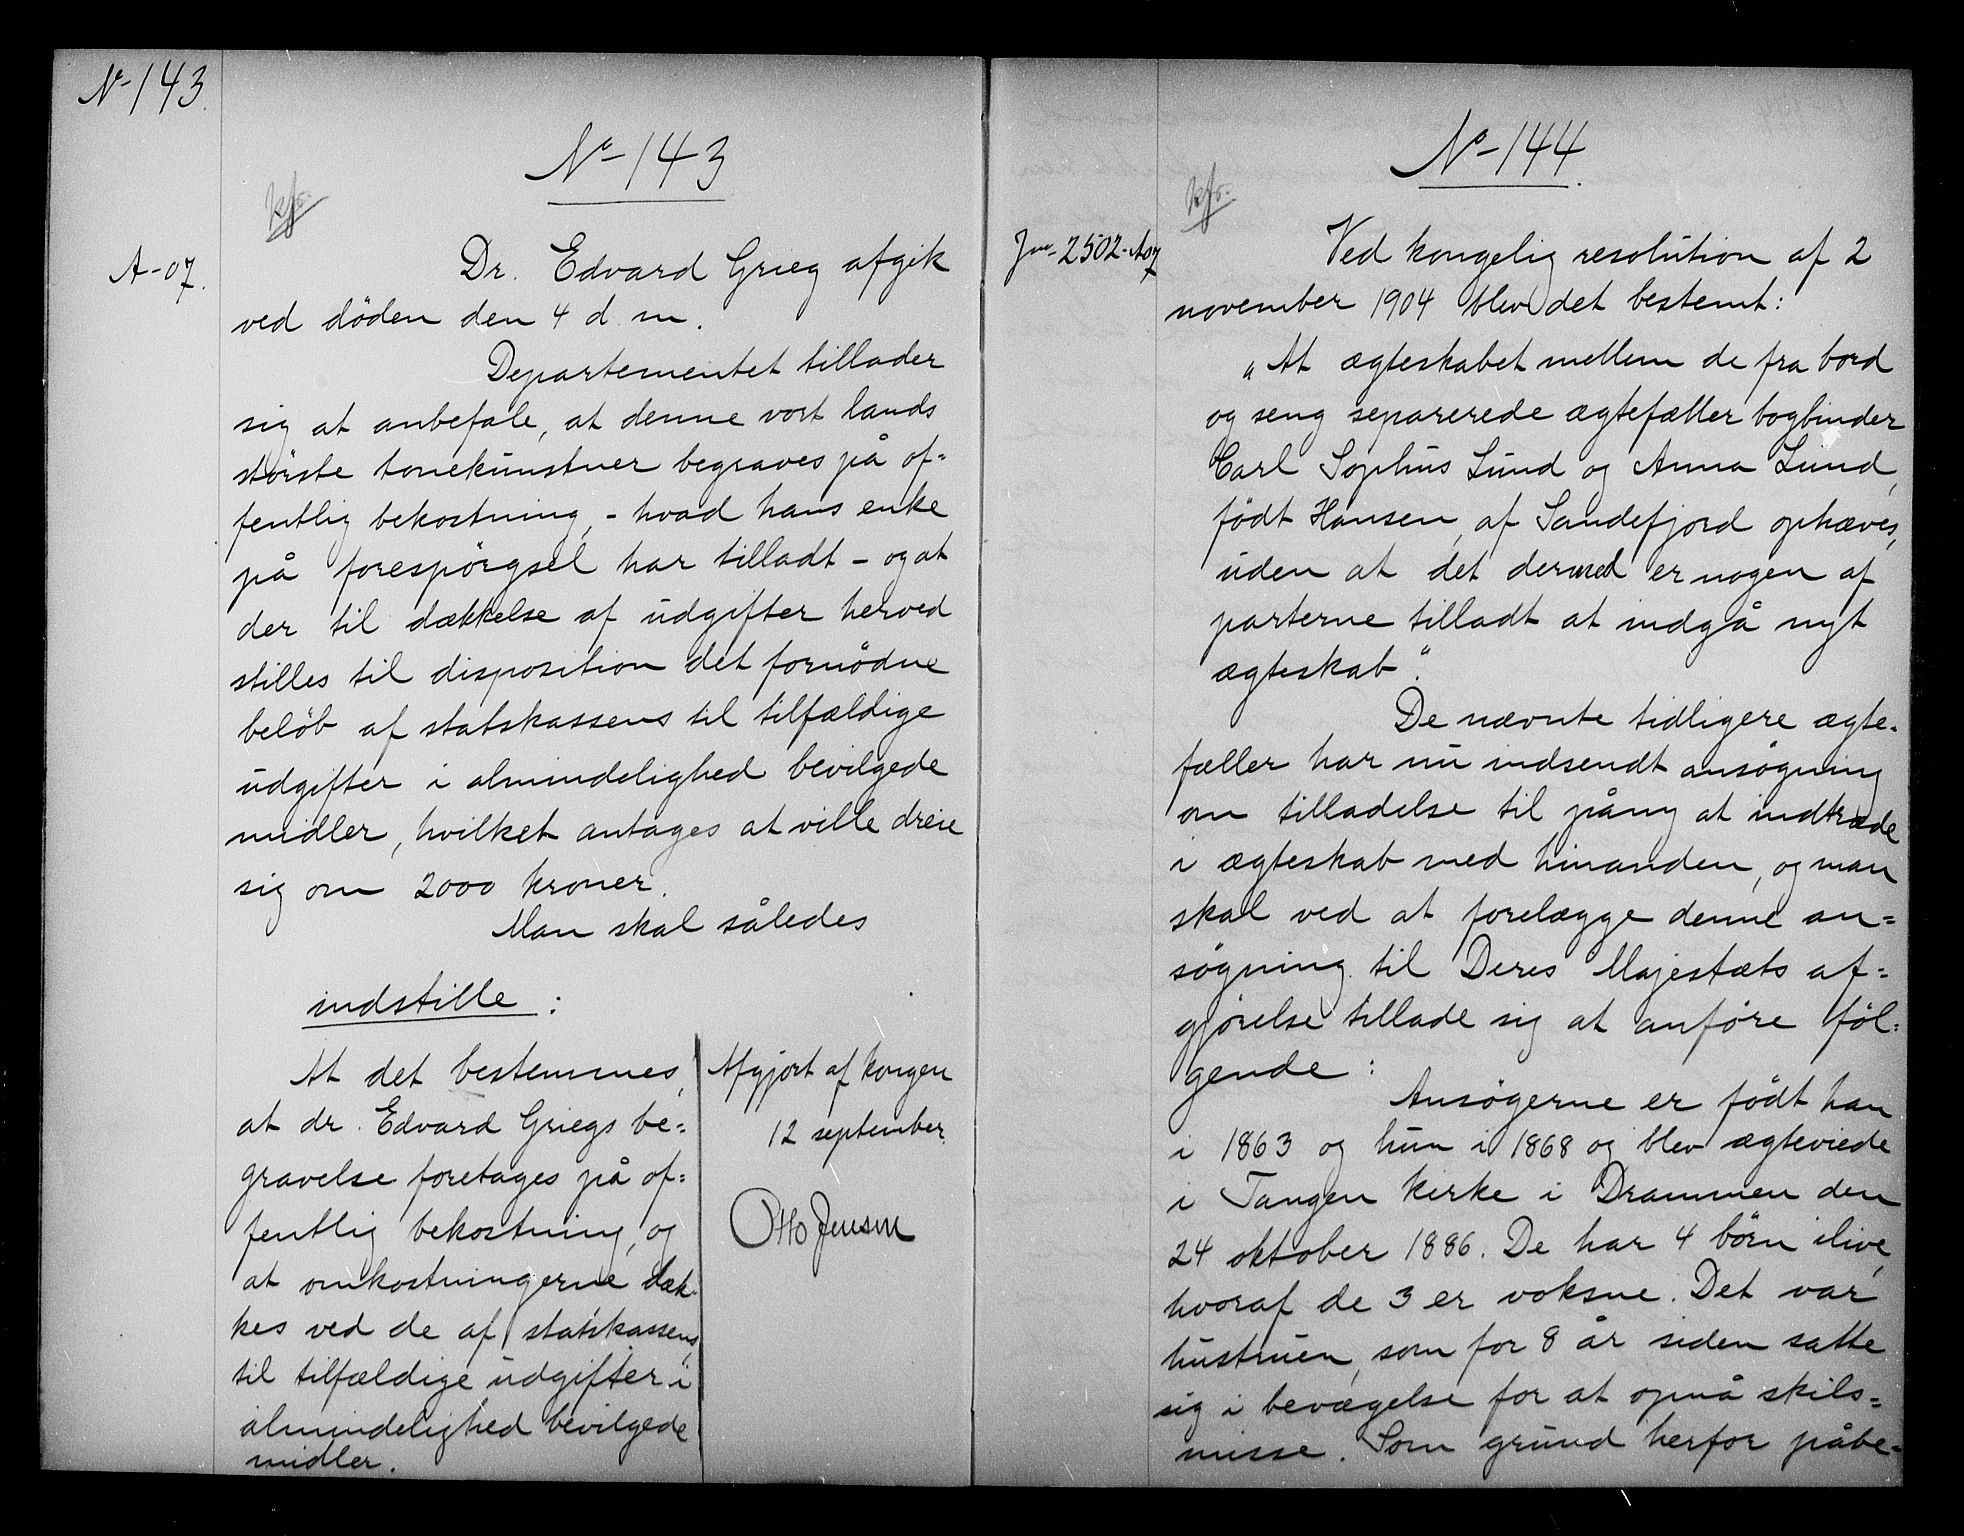 No-143.
No-143
kfr.
A-07.
Dr. Edvard Grieg afgik
ved døden den 4 d. m.
Departementet tillader
sig at anbefale, at denne vort lands
største tonekunstner begraves på of=
fentlig bekostning, - hvad hans enke
på forespørgsel har tilladt - og at
der til dækkelse af udgifter herved
stilles til disposition det fornødne
beløb af statskassens til tilfældige
udgifter i almindelighed bevilgede
midler, hvilket antages at ville dreie
sig om 2000 kroner.
Man skal således
indstille :
At det bestemmes,
at dr. Edvard Griegs be=
gravelse foretages på of=
fentlig bekostning, og
at omkostningerne dæk-
kes ved de af statskassens
til tilfældige udgifter i
almindelighed bevilgede
midler.
Afgjort af kongen
12 september.
Otto Jensen
No-144.
kfr.
Jno-2502-A07
Ved kongelig resolution af 2
november 1904 blev det bestemt:
"At ægteskabet mellem de fra bord
og seng separerede ægtefæller bogbinder
Carl Sophus Lund og Anna Lund,
født Hansen, af Sandefjord ophæves,
uden at det dermed er nogen af
parterne tilladt at indgå nyt
ægteskab".
De nævnte tidligere ægte-
fæller har nu indsendt ansøgning
om tilladelse til påny at indtræde
i ægteskab med hinanden, og man
skal ved at forelægge denne an=
søgning til Deres Majestæts af=
gjørelse tillade sig at anføre føl=
gende :
Ansøgerne er født han
i 1863 og hun i 1868 og blev ægteviede
i Tangen kirke i Drammen den
24 oktober 1886. De har 4 børn ilive,
hvoraf de 3 er voksne. Det var
hustruen, som for 8 år siden satte
sig i bevægelse for at opnå skils=
misse. Som grund herfor påbe-